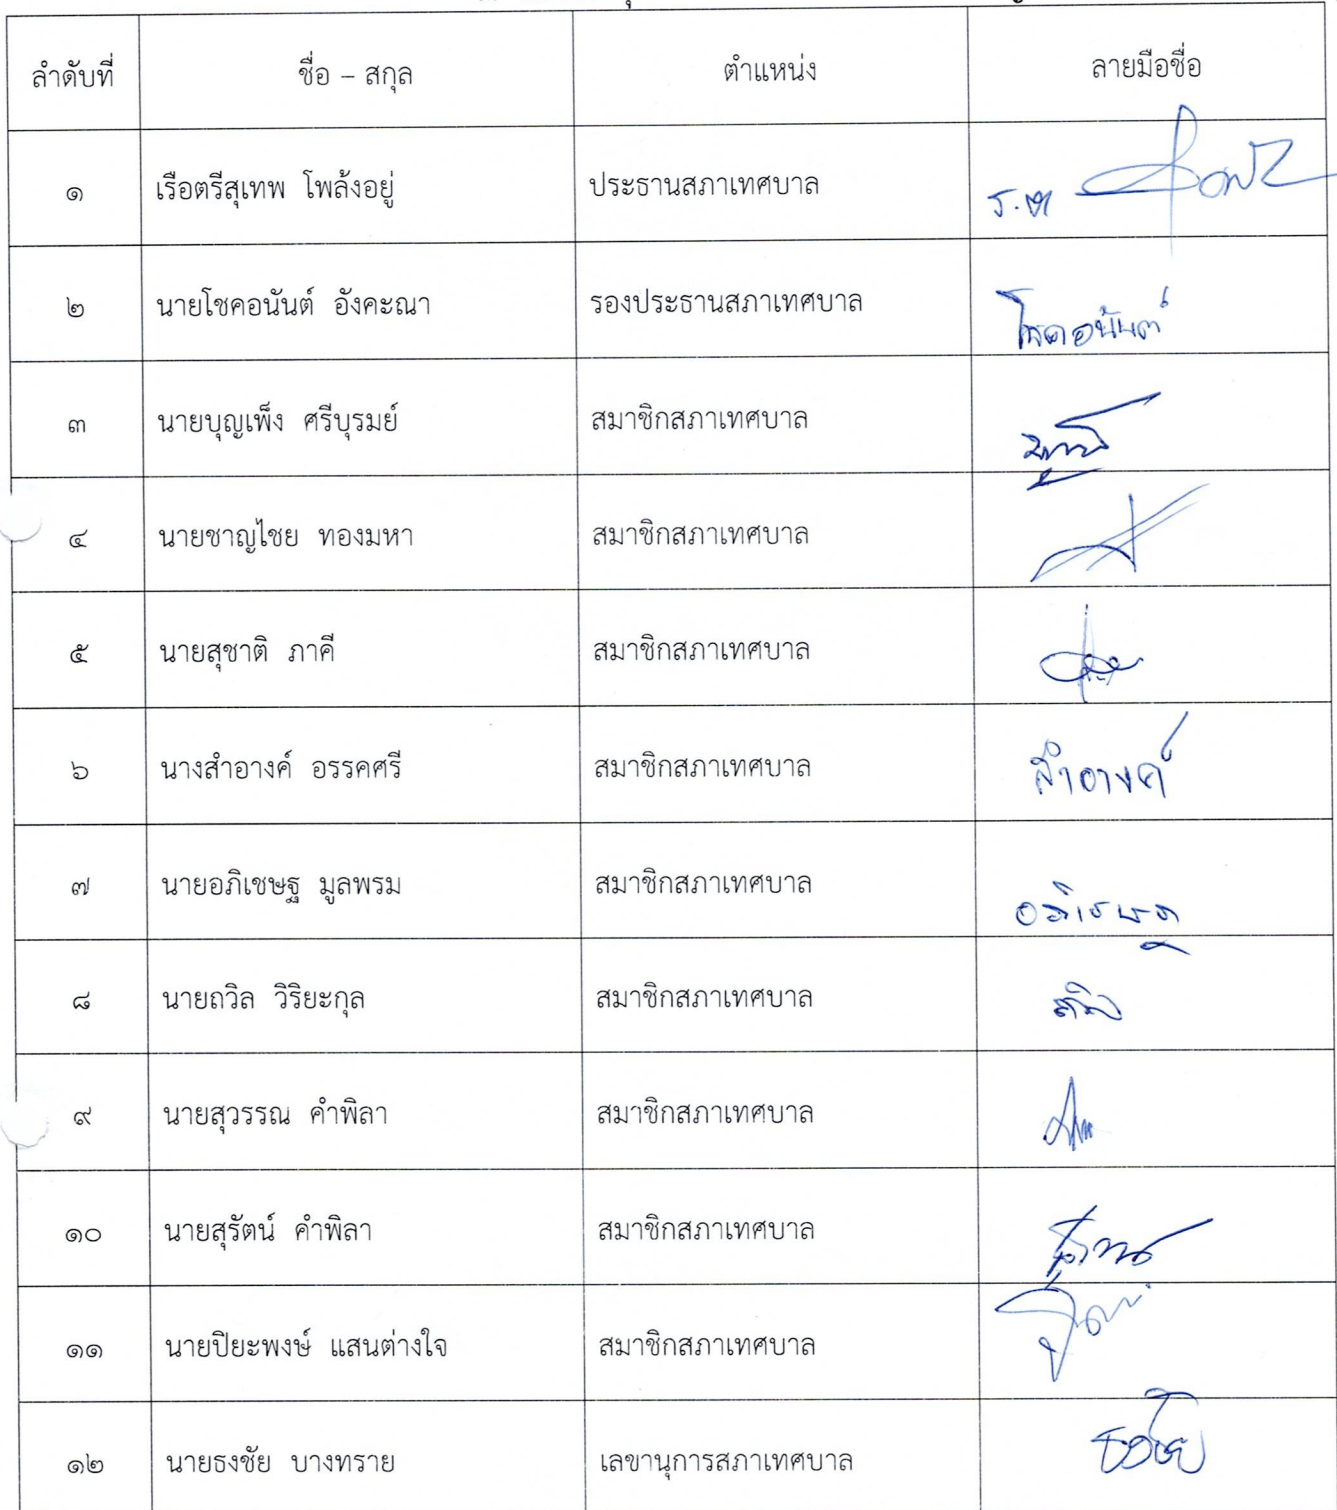 ลำดับที่ ชื่อ – สกุล ตำแหน่ง ลายมือชื่อ
๑ เรือตรีสุเทพ โพล้งอยู่ ประธานสภาเทศบาล ร.ต
๒ นายโชคอนันต์ อังคะณา รองประธานสภาเทศบาล โชคอนันต์
๓ นายบุญเพ็ง ศรีบุรมย์ สมาชิกสภาเทศบาล
๔ นายชาญไชย ทองมหา สมาชิกสภาเทศบาล
๕ นายสุชาติ ภาคี สมาชิกสภาเทศบาล
๖ นางสำอางค์ อรรคศรี สมาชิกสภาเทศบาล สำอางค์
๗ นายอภิเชษฐ มูลพรม สมาชิกสภาเทศบาล อภิเชษฐ
๘ นายถวิล วิริยะกุล สมาชิกสภาเทศบาล ถวิล
๙ นายสุวรรณ คำพิลา สมาชิกสภาเทศบาล
๑๐ นายสุรัตน์ คำพิลา สมาชิกสภาเทศบาล
๑๑ นายปิยะพงษ์ แสนต่างใจ สมาชิกสภาเทศบาล
๑๒ นายธงชัย บางทราย เลขานุการสภาเทศบาล ธงชัย